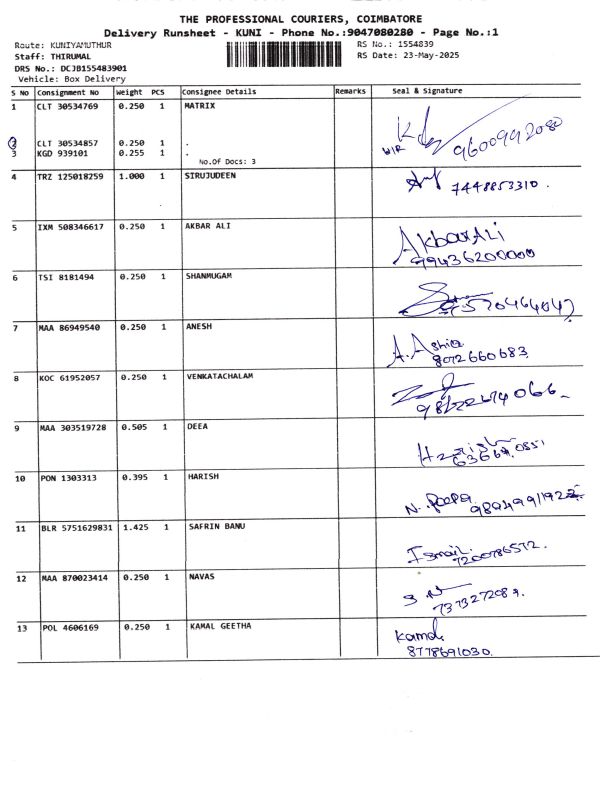 THE PROFESSIONAL COURIERS, COIMBATORE
Delivery Runsheet - KUNI - Phone No.:9047080280 - Page No.:1
Route: KUNIYAMUTHUR RS No.: 1554839
Staff: THIRUMAL RS Date: 23-May-2025
DRS No.: DCJB155483901
Vehicle: Box Delivery
S No Consignment No Weight PCS Consignee Details Remarks Seal & Signature
1 CLT 30534769 0.250 1 MATRIX
9600992080
2 CLT 30534857 0.250 1 .
3 KGD 939101 0.255 1 .
No.Of Docs: 3
4 TRZ 125018259 1.000 1 SIRUJUDEEN
7448853310.
5 IXM 508346617 0.250 1 AKBAR ALI
AkbarALi
6 TSI 8181494 0.250 1 SHANMUGAM
7 MAA 86949540 0.250 1 ANESH
8072660683
8 KOC 61952057 0.250 1 VENKATACHALAM
9 MAA 303519728 0.505 1 DEEA
10 PON 1303313 0.395 1 HARISH
11 BLR 5751629831 1.425 1 SAFRIN BANU
Ismail.
7200786572.
12 MAA 870023414 0.250 1 NAVAS
13 POL 4606169 0.250 1 KAMAL GEETHA
Kamal
8778691030.